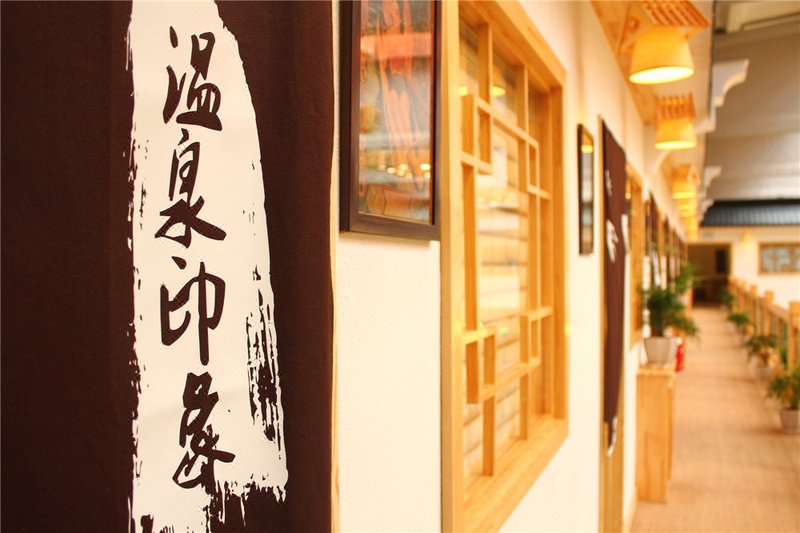 温泉印象